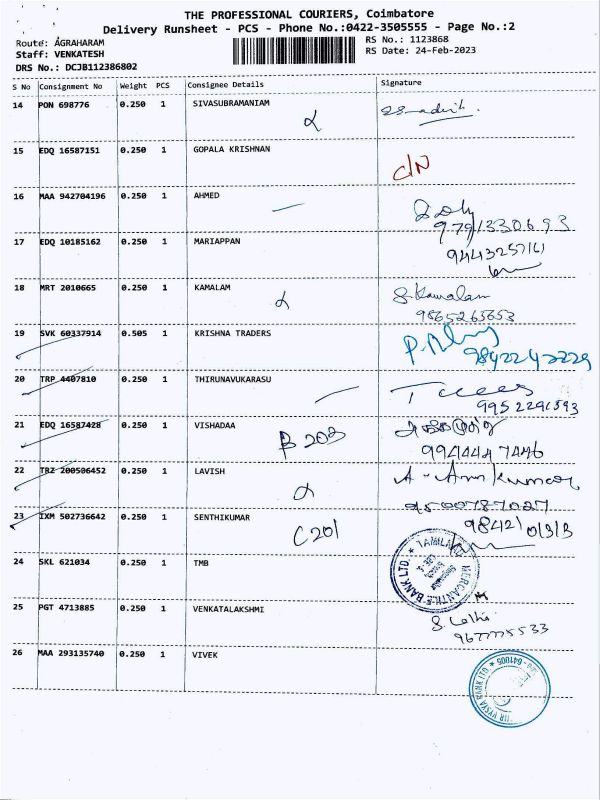 THE PROFESSIONAL COURIERS, Coimbatore
Delivery Runsheet - PCS - Phone No.:0422-3505555 - Page No.:2
Route: AGRAHARAM
RS No.: 1123868
Staff: VENKATESH
RS Date: 24-Feb-2023
DRS No.: DCJB112386802
S No Consignment No Weight PCS Consignee Details Signature
14 PON 698776 0.250 1 SIVASUBRAMANIAM
15 EDQ 16587151 0.250 1 GOPALA KRISHNAN
C/N
16 MAA 942704196 0.250 1 AHMED
9791330693
17 EDQ 10185162 0.250 1 MARIAPPAN
9443257161
18 MRT 2010665 0.250 1 KAMALAM
S. Kamalam
9865265653
19 SVK 60337914 0.505 1 KRISHNA TRADERS
20 TRP 4407810 0.250 1 THIRUNAVUKARASU
9952291593
21 EDQ 16587428 0.250 1 VISHADAA
B 203
9944447446
22 TRZ 200506452 0.250 1 LAVISH
A-Arunkumar
9500787027
23 IXM 502736642 0.250 1 SENTHIKUMAR
C201
24 SKL 621034 0.250 1 TMB
MERCANTILE BANK LTD.
25 PGT 4713885 0.250 1 VENKATALAKSHMI
26 MAA 293135740 0.250 1 VIVEK
VYSYA BANK LTD